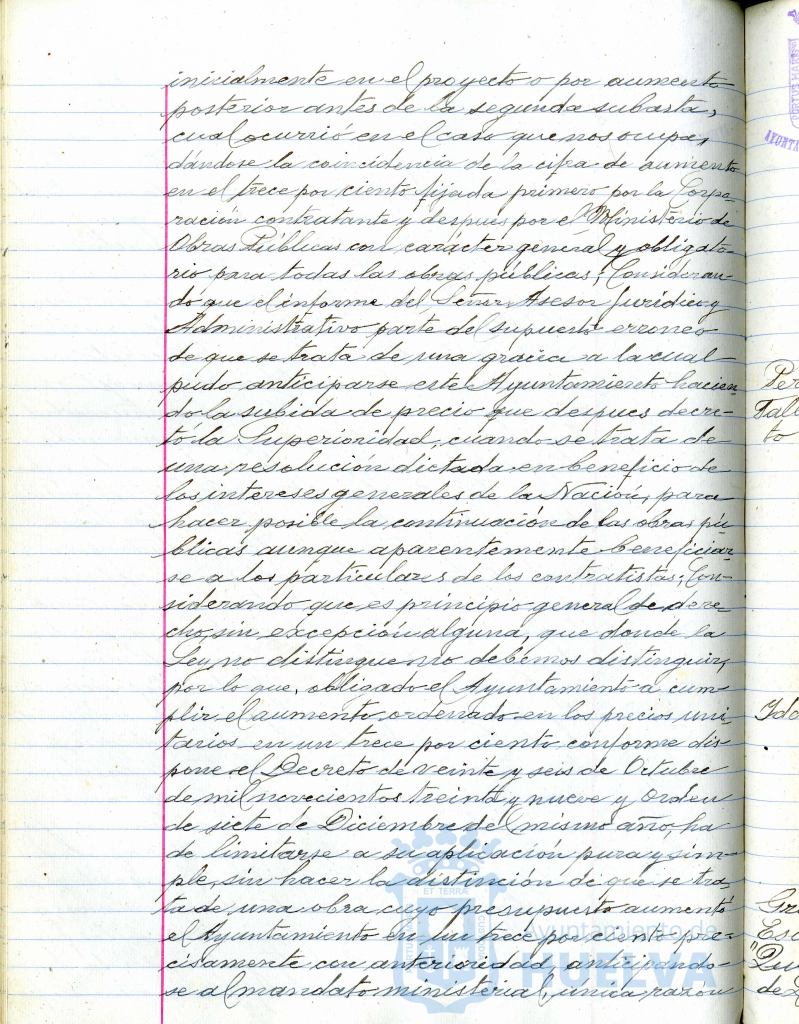 inicialmente en el proyecto o por aumento
posterior antes de la segunda subasta,
cual ocurrió en el caso que nos ocupa,
dándose la coincidencia de la cifra de aumento
en el trece por ciento fijada primero por la Corpo-
ración contratante y despues por el Ministerio de
Obras Públicas con carácter general y obligato-
rio para todas las obras públicas; Consideran-
do que el informe del Señor Asesor Jurídico y
Administrativo parte del supuesto erroneo
de que se trata de una gracia a la cual
pudo anticiparse este Ayuntamiento hacien-
do la subida de precio que despues decre-
tó la Superioridad, cuando se trata de
una resolución dictada en beneficio de
los intereses generales de la Nación, para
hacer posible la continuación de las obras pú-
blicas aunque aparentemente beneficiar-
se a los particulares de los contratistas; Con-
siderando que es principio general de dere-
cho, sin excepción alguna, que donde la
Ley no distingue no debemos distinguir,
por lo que, obligado el Ayuntamiento a cum-
plir el aumento ordenado en los precios uni-
tarios en un trece por ciento conforme dis-
pone el Decreto de veinte y seis de Octubre
de mil novecientos treinta y nueve y Orden
de siete de Diciembre del mismo año, ha
de limitarse a su aplicación pura y sim-
ple, sin hacer la distinción de que se tra-
ta de una obra cuyo presupuesto aumentó
el Ayuntamiento en un trece por ciento pre-
cisamente con anterioridad, anticipando-
se al mandato ministerial, unica razón
Ayuntamiento de
HUELVA
ET TERRA
PORTUS MARIS
AYUNTA
Per
Tall
to
Ido
Gra
Esc
"Qui
de L